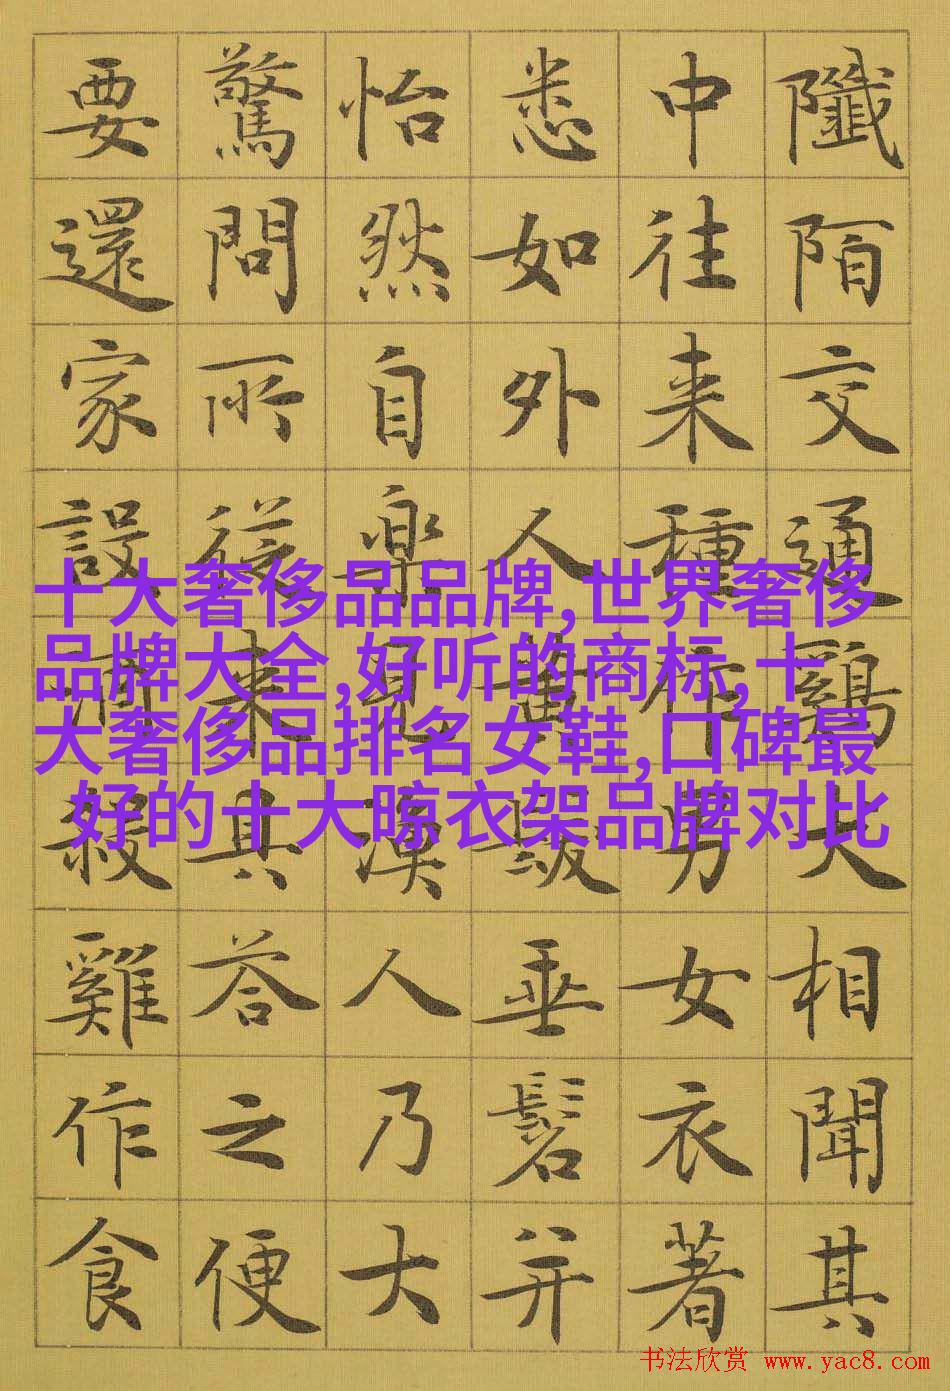 陌交通鷄犬相聞其
中往来種作男女衣著
悉如外人黄髮垂髫并
怡然自楽見漁人乃大
驚問所從来具荅之便
要還家設酒殺雞作食
十大奢侈品品牌,世界奢侈
品牌大全,好听的商标,十
大奢侈品排名女鞋,口碑最
好的十大晾衣架品牌对比
书法欣赏 www.yac8.com